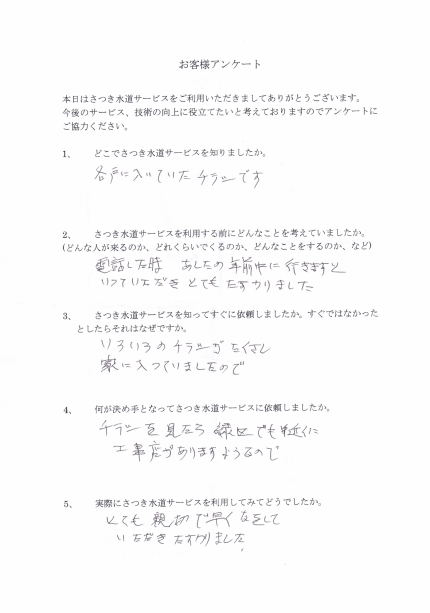 お客様アンケート
本日はさつき水道サービスをご利用いただきましてありがとうございます。
今後のサービス、技術の向上に役立てたいと考えておりますのでアンケートに
ご協力ください。
1、 どこでさつき水道サービスを知りましたか。
各戸に入いていたチラシです
2、 さつき水道サービスを利用する前にどんなことを考えていましたか。
(どんな人が来るのか、どれくらいでくるのか、どんなことをするのか、など)
電話した時 あしたの午前中に行きますと
いっていただきとてもたすかりました
3、 さつき水道サービスを知ってすぐに依頼しましたか。すぐではなかった
としたらそれはなぜですか。
いろいろのチラシがたくさん
家に入っていましたので
4、 何が決め手となってさつき水道サービスに依頼しましたか。
チラシを見たら緑区でも近くに
工事店がありますようなので
5、 実際にさつき水道サービスを利用してみてどうでしたか。
とても親切で早く
いただきたすかりました